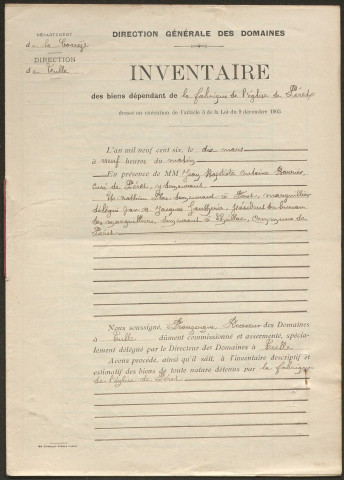 DÉPARTEMENT
de la Corrèze
DIRECTION
de Tulle
DIRECTION GÉNÉRALE DES DOMAINES
INVENTAIRE
des biens dépendant de la fabrique de l'église de Péret
dressé en exécution de l'article 3 de la Loi du 9 décembre 1905
L'an mil neuf cent six, le dix mars
à neuf heures du matin
En présence de MM Jean Baptiste
curé de Péret, y demeurant
demeurant à Péret, marguillier
délégué par M Jacques président du bureau
des marguilliers, demeurant à commune de
Péret
Nous soussigné, Receveur des Domaines
à Tulle dûment commissionné et assermenté, spécia-
lement délégué par le Directeur des Domaines à Tulle
Avons procédé, ainsi qu'il suit, à l'inventaire descriptif et
estimatif des biens de toute nature détenus par la fabrique
de l'église de Péret